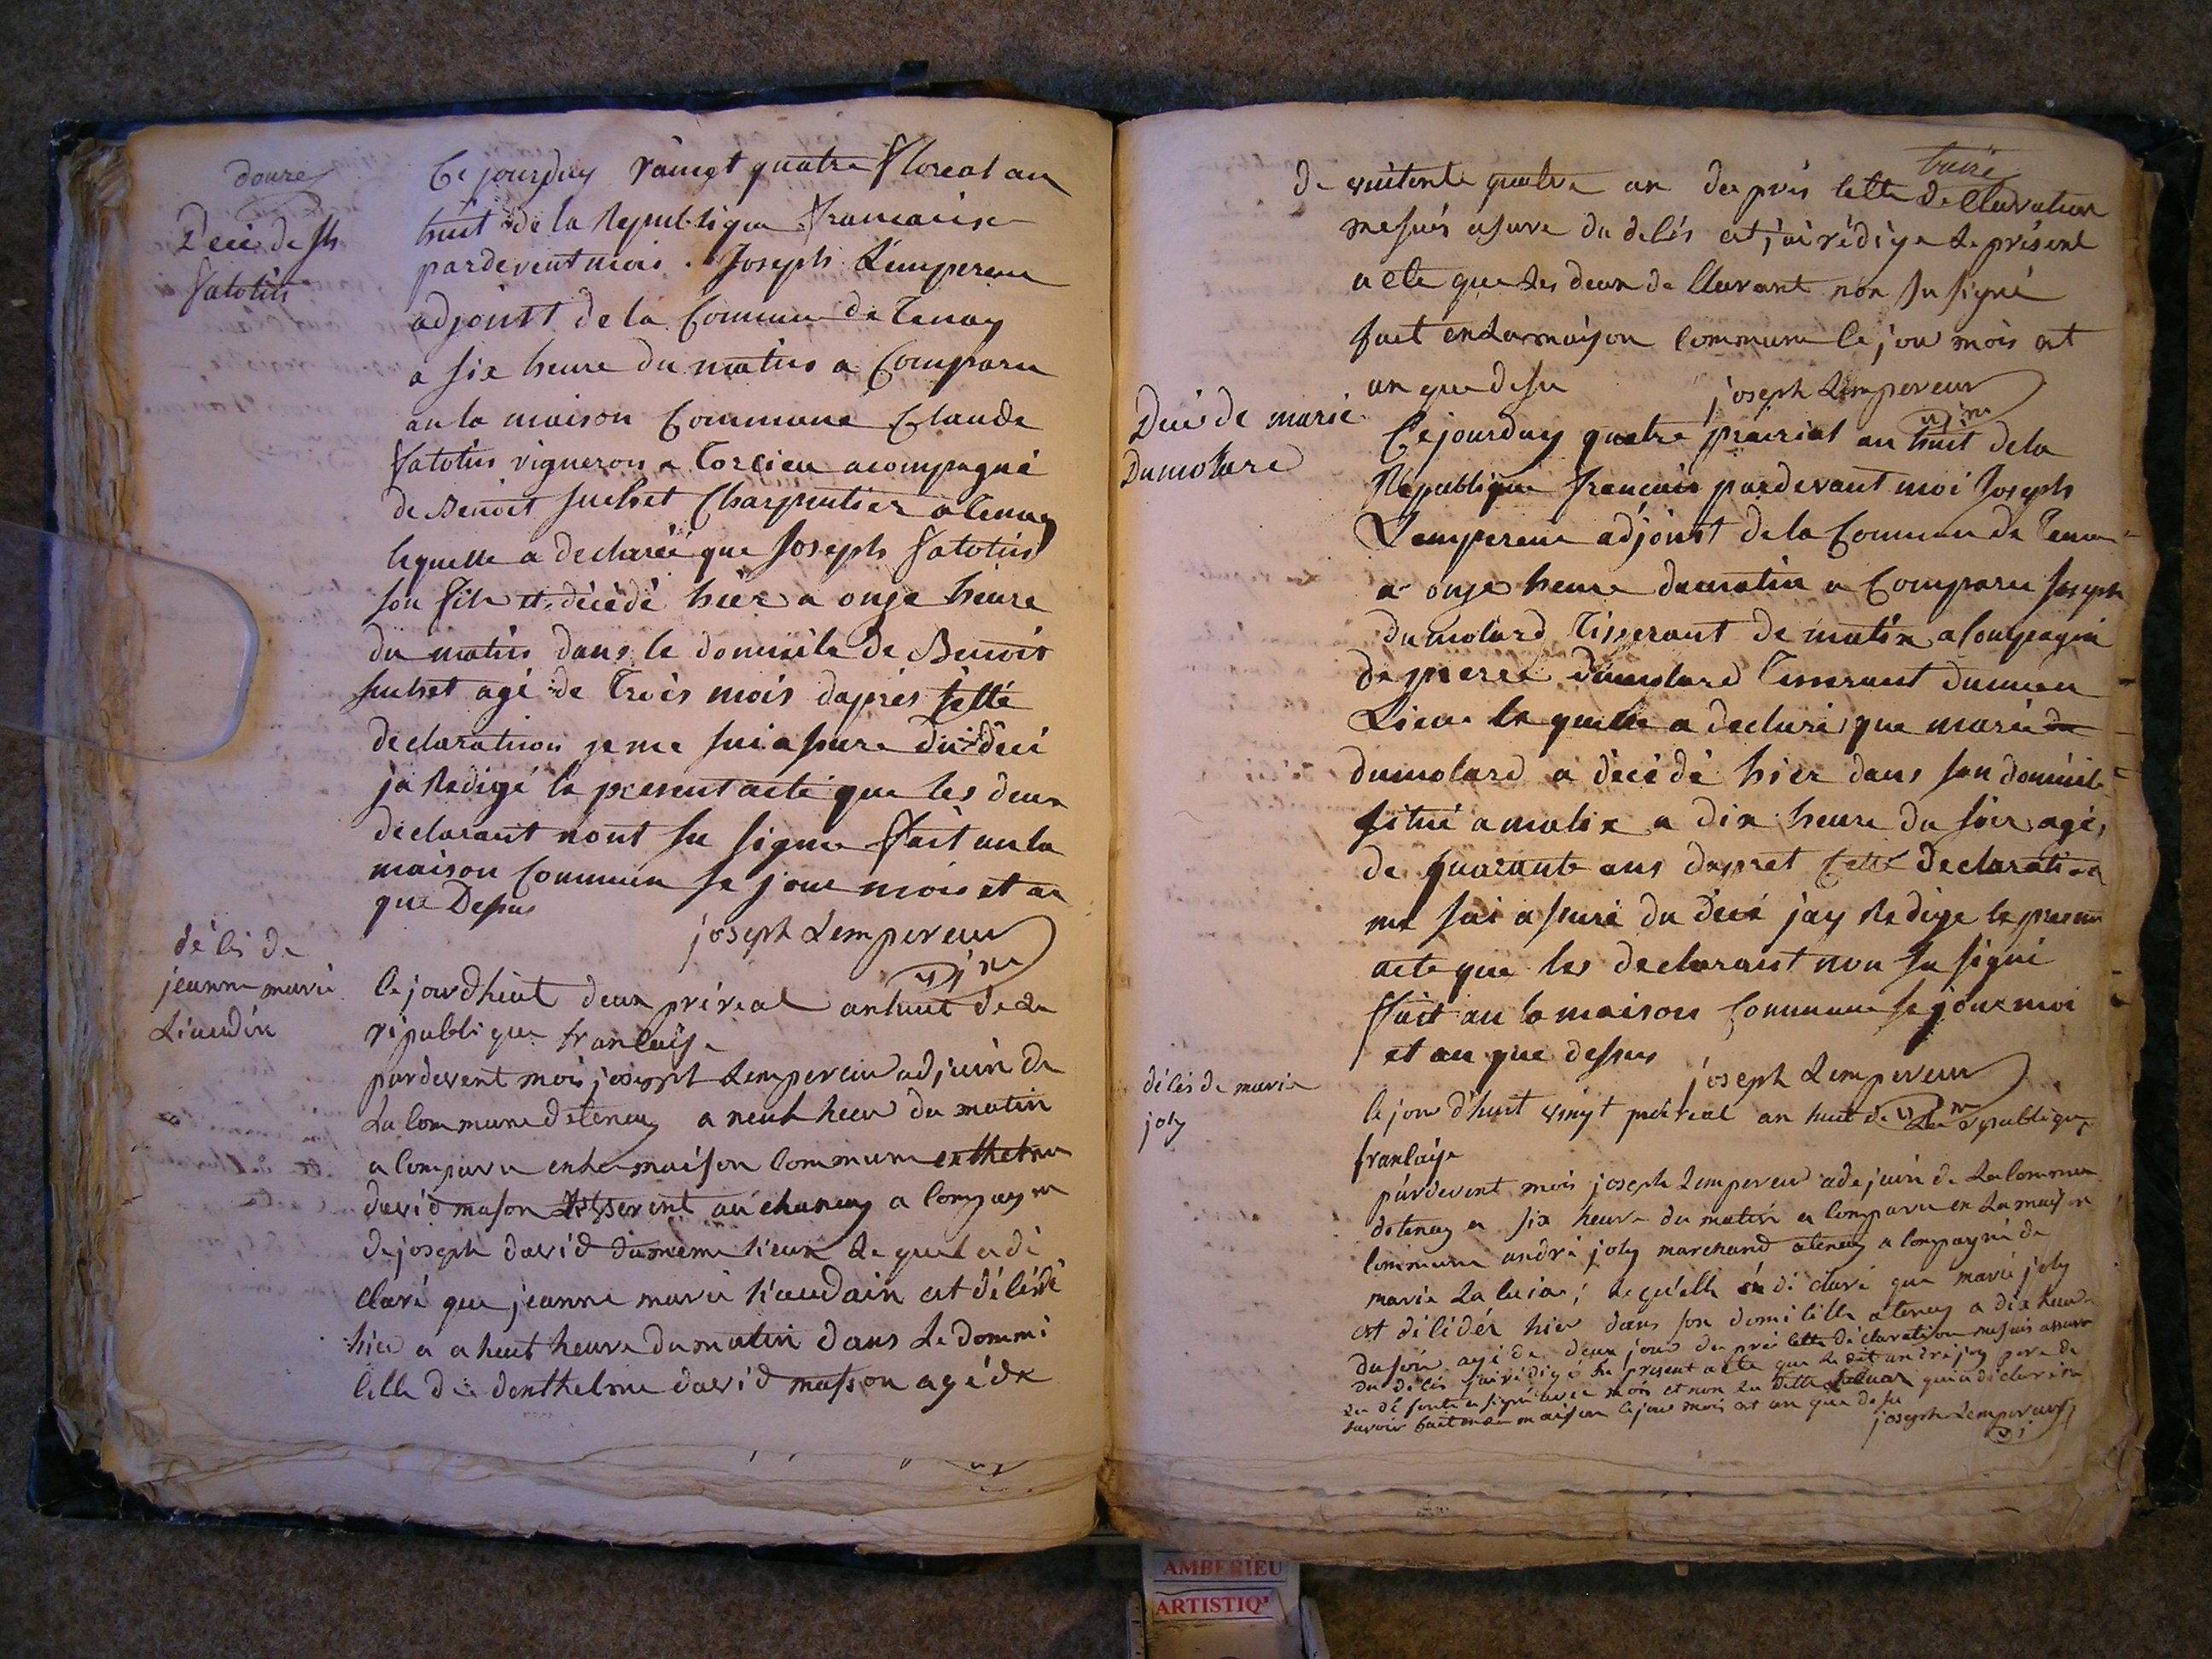 douze
Décé de Jh
fatotin
Ce jourduy vaingt quatre floreal an
huit de la Republique francaise
pardevent moi . Joseph Lempereur
adjoint de la Commune de Tenay
a six heure du matin a Comparu
an la maison Commune Claude
fatotin vigneron a Torcieu acompagné
de Benoit suchet Charpentier a tenay
lequelle a declareé que Joseph fatotin
son fils et décédé hier a onze heure
du matin dans le domicile de Benoit
suchet agé de Trois mois dapres sette
declaration je me sui assure du déce
ja Redigé le present acte que les deux
declarant nont su signe fait an la
maison Commun se jour mois et an
que Dessus
joseph Lempereur
adjn
décés de
jeanne marie
Liaudin
Ce jourdhuit deux prireal an huit de La
républi que francaise
pardevent mois joseph Lempereur adjuin de
La commune de tenay a neuf heur du matin
a comparu en La maison commune enthelme
david mason Tisserent au chanay a compagne
de joseph david du meme Lieux Le quel a dé
claré que jeanne marie Liaudain est décédé
hier a huit heure du matin dans Le dommi
cille de denthelme david masson agé de
treize
de cuitente quatre an de pres cette declaration
me suis asure du décés et j'ai rédige Le présent
acte que Les deux declarant non su signé
fait en La maison commune Ce jour mois et
an que desu
joseph Lempereur
adjn
Décé de marie
Dumolard
Ce jourduy quatre prairial an huit de la
Republique francais pardevant moi Joseph
Lempereur adjoint de la Commune de Tenay
a onze heure du matin a Comparu Joseph
dumolard Tisserant de matix acompagné
de pierre dumolard Tisserant du meme
Lieu le quelle a declaré que marie du
dumolard a décédé hier dans son domicile
situé a malix a dix heure du soir agé,
de quarante ans dapret Cette declaration
me sui assuré du décé jay Redige le present
acte que les declarant non su signé
fait an la maison Commune se jour moi
et an que dessus
joseph Lempereur
adjn
décés de marie
joly
Ce jour d'huit vingt preireal an huit de La republique
francaise
pardevent mois joseph Lempereur adejuin de La commune
de tenay a six heure du matin a comparu en La maison
commune andré joly marchand a tenay a compagné de
marie La ; Lequelle déclaré que marie joly
est décédér hier dans son domicille a tenay a dix heure
du soir agé de deux jour de prés cette déclaration me suis assure
du décés j'ai rédigé Le present acte que Le dit andré joly pere de
La défunte a signé avec mois et non La ditte qui a déclaré ne
savoir fait en La maison Ce jour mois et an que desu
joseph Lempereur
adj
AMBERIEU
ARTISTIQ'